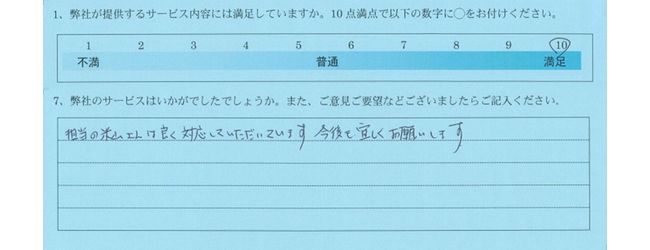 1、弊社が提供するサービス内容には満足していますか。10点満点で以下の数字に○をお付けください。
1 2 3 4 5 6 7 8 9 10
不満 普通 満足
7、弊社のサービスはいかがでしたでしょうか。また、ご意見ご要望などございましたらご記入ください。
担当の米山さんは良く対応していただいています 今後も宜しくお願いします